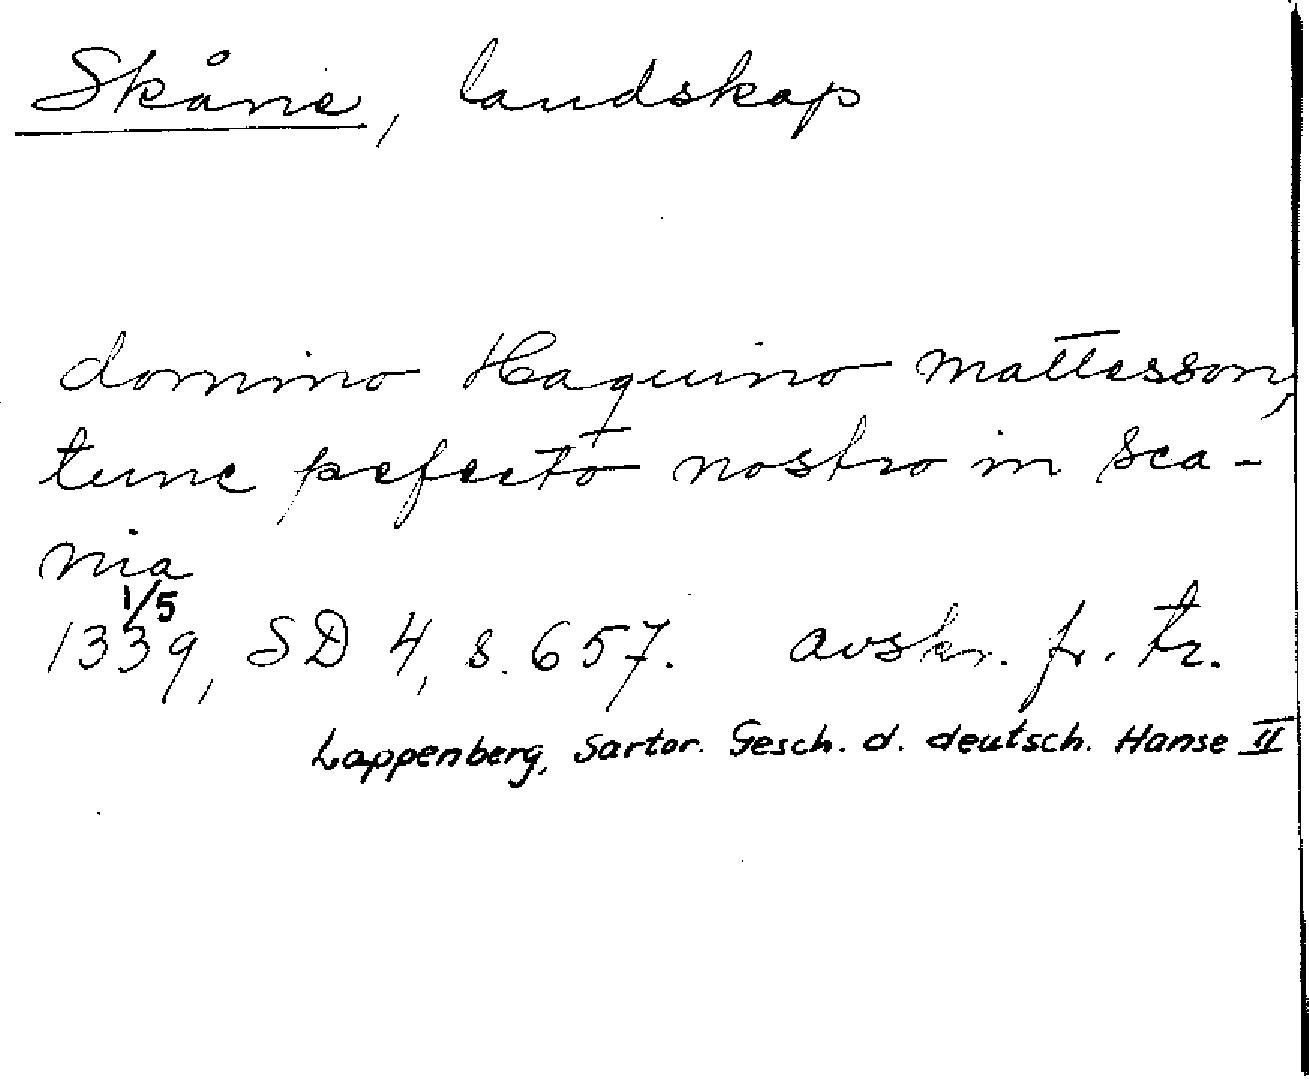 Skåne, landskap
domino Haquino mattesson,
tunc prefecto nostro in sca-
nia
1/5
1339, SD 4, s. 657. avskr. fr. tr.
Lappenberg, Sartor. Gesch. d. deutsch. Hanse II